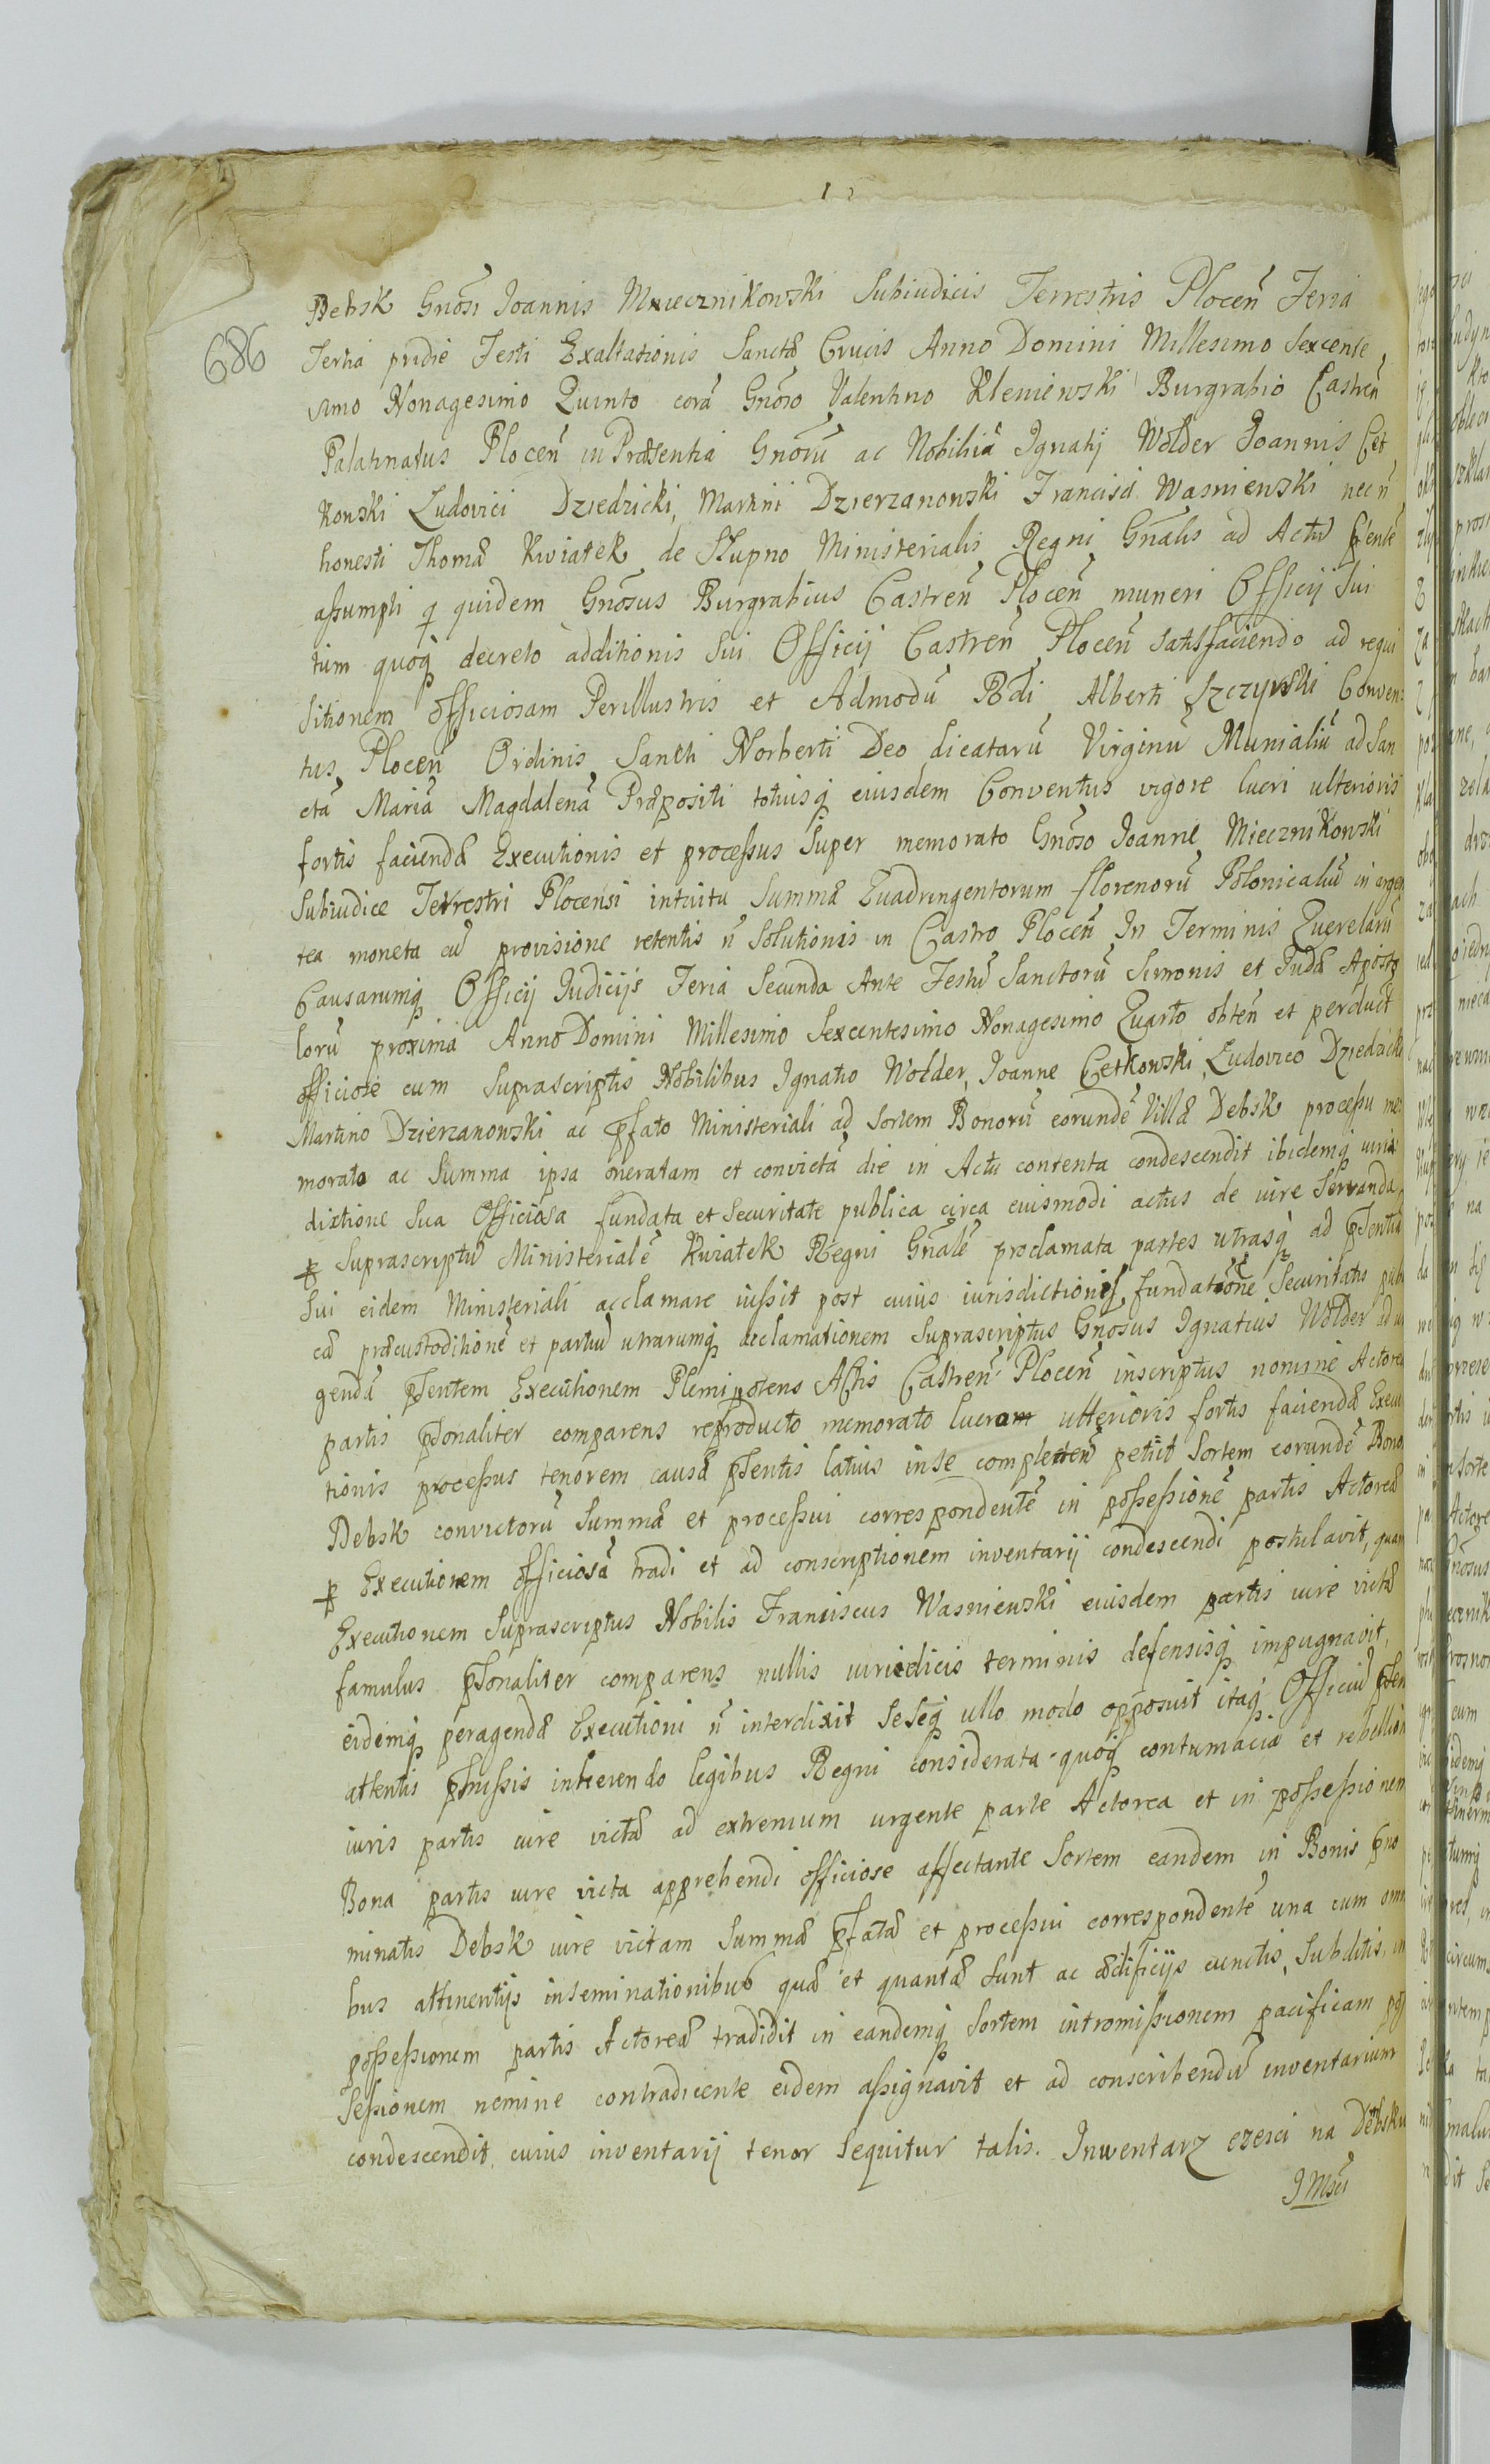 686
Debsk Gnosi Joannis Miecznikowski Subiudicis Terrestris Plocen̄ Feria
Tertia pridie Festi Exaltationis Sanctæ Crucis Anno Domini Millesimo Sexcente
simo Nonagesimo Quinto corā Gnoso Valentino Kleniewski Burgrabio Castren̄
Palatinatus Plocen̄ in Præsentia Gnosū ac Nobiliū Ignatij Wolder Joannis Cet
kowski Ludovici Dziedzicki, Martini Dzierzanowski Francisci Wasniewski nec n̄
honesti Thomæ Kwiatek de Slupno Ministerialis Regni Gn̄alis ad Actū p̄sentē
assumpti q quidem Gnosus Burgrabius Castren̄ Plocen̄ muneri Officij Sui
tum quoq decreto additionis Sui Officij Castren̄ Plocen̄ satisfaciendo ad requi
sitionem officiosam Perillustris et Admodū Rdi Alberti Szczyński Conven:
tus Plocen̄ Ordinis Sancti Norberti Deo dicatarū Virginū Munialiū ad San
ctā Mariā Magdalenā Præpositi totiusq eiusdem Conventus vigore lucri ulterioris
fortis faciendæ Executionis et processus super memorato Gnoso Joanne Miecznikowski
Subiudice Terrestri Plocensi intuitu Summæ Quadringentorum florenorū Polonicaliū in argen
tea moneta cū provisione retentis n̄ Solutionis in Castro Plocen̄ In Terminis Querelarū
Causarumq Officij Judicijs Feria Secunda Ante Festū Sanctorū Simonis et Judæ Aposto
lorū proxima Anno Domini Millesimo Sexcentesimo Nonagesimo Quarto obten̄ et perduct
officiose cum Suprascriptis Nobilibus Ignatio Wolder, Joanne Cetkowski, Ludovico Dziedzicki
Martino Dzierzanowski ac p̄fato Ministeriali ad Sortem Bonorū eorundē Villæ Debsk processu me
morato ac Summa ipsa oneratam et convictā die in Actu contenta condescendit ibidemq iuris
dictione Sua Officiosa fundata et Securitate publica circa euismodi actus de iure Servanda
p Suprascriptū Ministerialē Kwiatek Regni Gn̄alē proclamata partes utrasq ad p̄sentiā
Sui eidem Ministeriali acclamare iussit post cuius iurisdictionis fundatione Securitatis publi
cæ præcustoditionē et partiū utrarumq acclamationem Suprascriptus Gnosus Ignatius Wolder ad
gendā p̄sentem Executionem Plenipotens Actis Castren̄ Plocen̄ inscriptus nomine Actoreæ
partis p̄sonaliter comparens reproducto memorato lucrum ulterioris fortis faciendæ Execu
tionis processus tenorem causæ p̄sentis latius in se complecten̄ petiit Sortem eorundē Bono
Debsk convictorū Summæ et processui correspondentē in possessionē partis Actoreæ
p Executionem officiosā tradi et ad conscriptionem inventarij condescendi postulavit, quam
Executionem Suprascriptus Nobilis Franciscus Wasniewski eiusdem partis iure victæ
famulus p̄sonaliter comparens nullis iuriedicis terminis defensisq impugnavit,
eidemq peragendæ Executioni n̄ interdixit Seseq ullo modo opposuit itaq Officiū p̄sen
attentis p̄missis inhærendo legibus Regni considerata quoq contumacia et rebellion
iuris partis iure victæ ad extremum urgente parte Actorea et in possessionem
Bona partis iure victa apprehendi officiose affectante Sortem eandem in Bonis p̄no
minatis Debsk iure victam Summæ p̄fatæ et processui correspondentē una cum omni
bus attinentijs inseminationibus quæ et quantæ sunt ac ædificijs cunctis, Subditis, in
possessionem partis Actoreæ tradidit in eandemq Sortem intromissionem pacificam pos
sessionem nemine contradicente eidem assignavit et ad conscribendū inventarium
condescendit, cuius inventarij tenor Sequitur talis. Inwentarz czesci na Debsku
JMsci